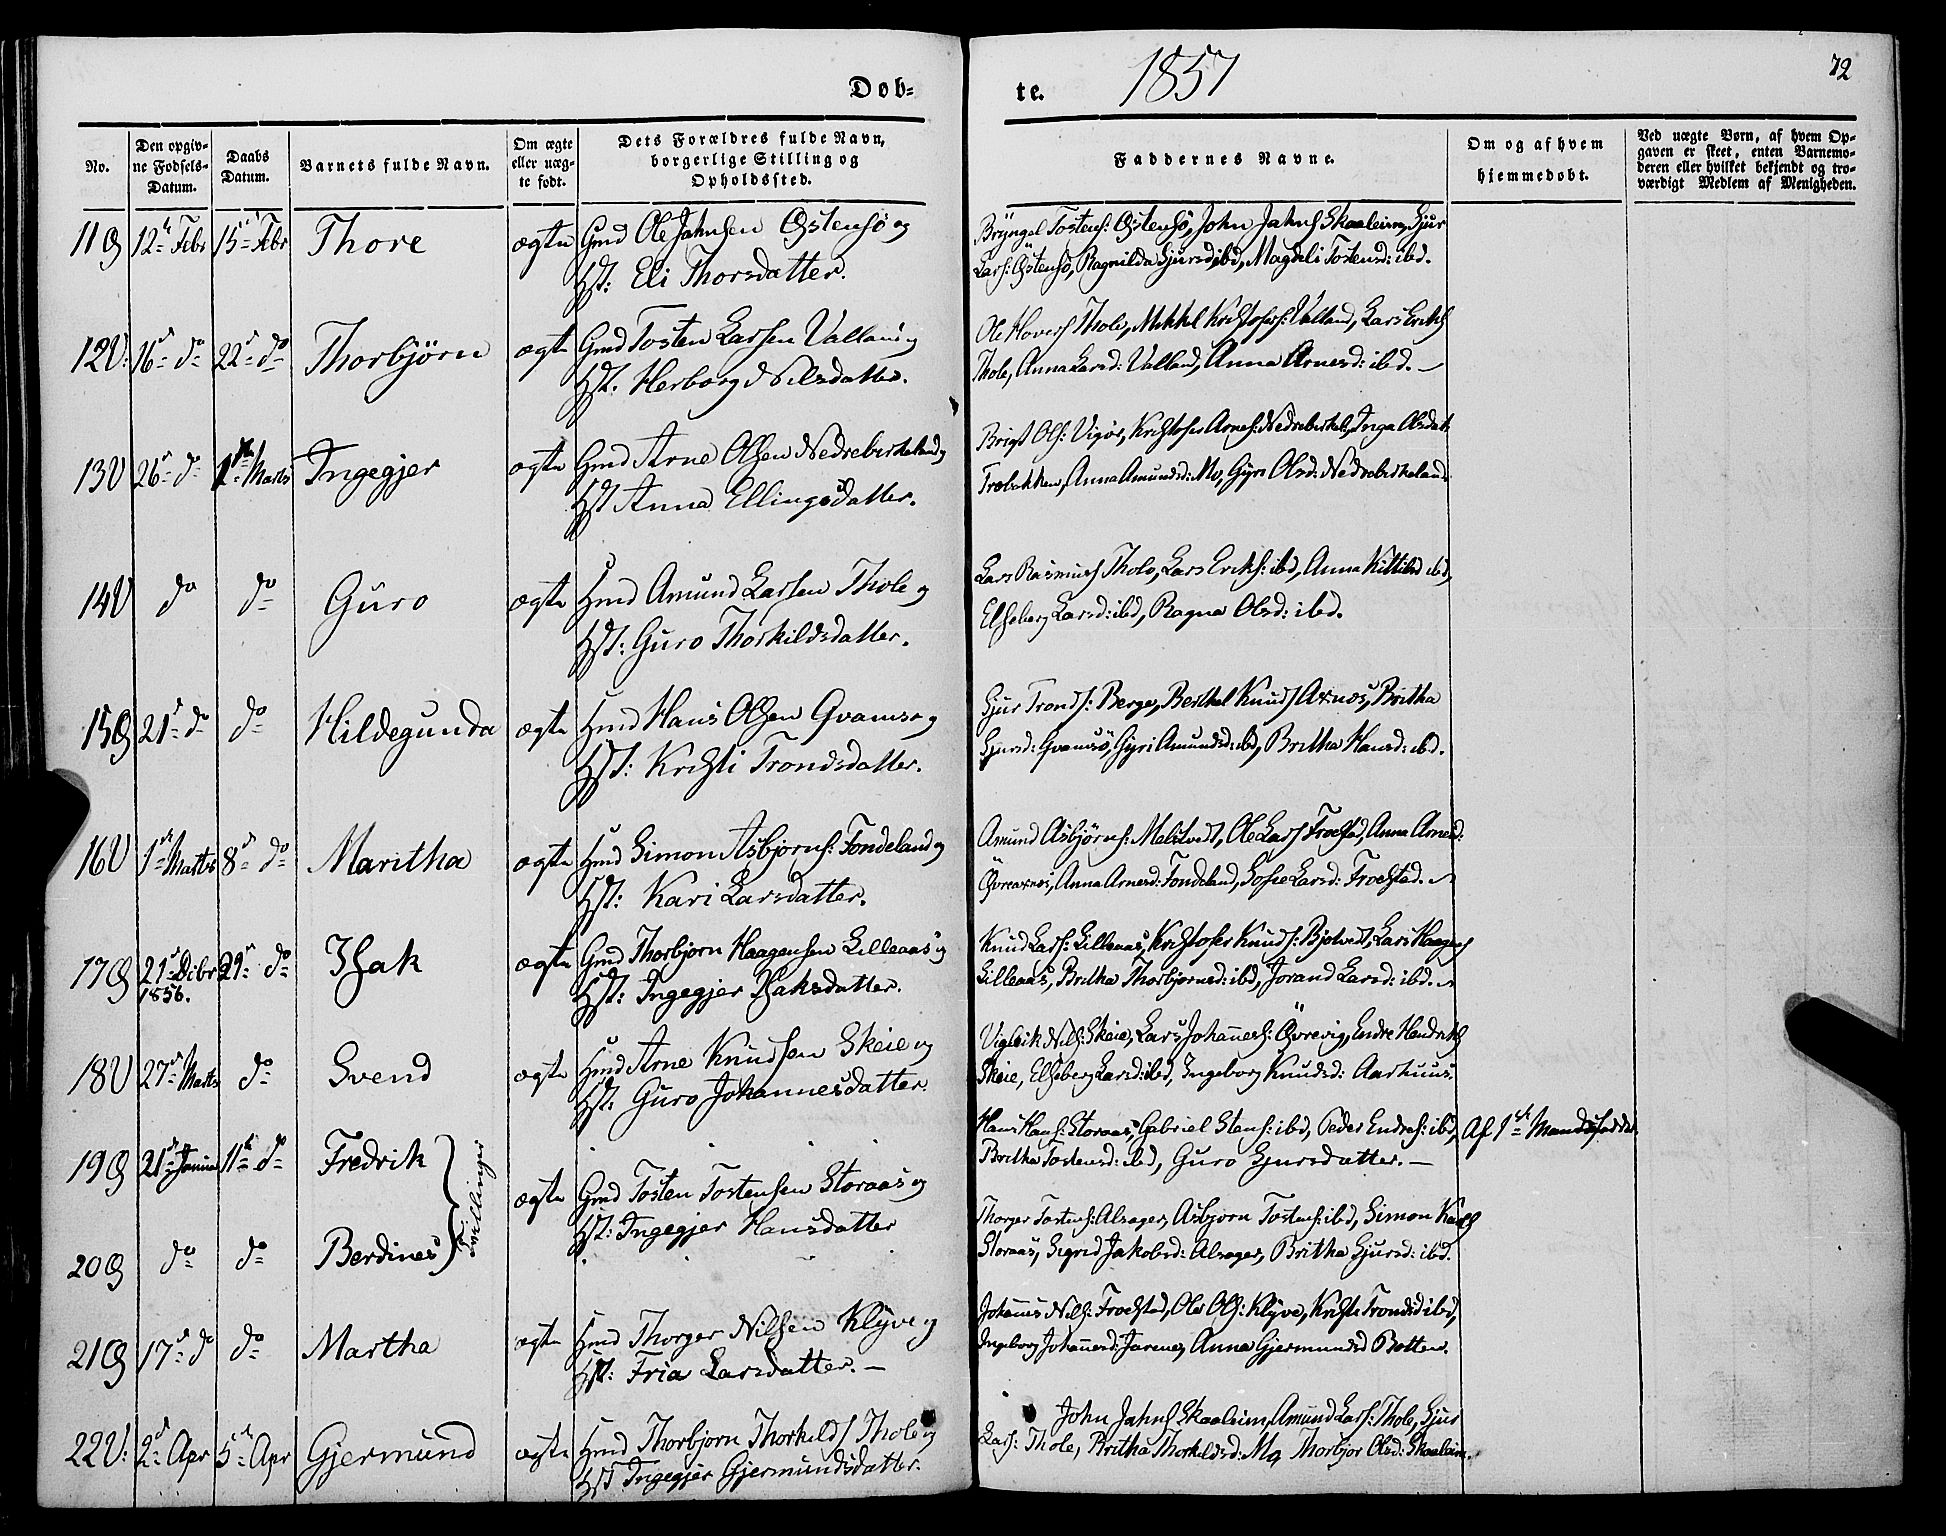 Døb-
te.
1857
72
No.
Den opgiv-
ne Fødsels-
Datum.
Daabs
Datum.
Barnets fulde Navn.
Om ægte
eller uæg-
te født.
Dets Forældres fulde Navn,
borgerlige Stilling og
Opholdssted.
Faddernes Navne.
Om og af hvem
hjemmedøbt.
Ved uægte Børn, af hvem Op-
gaven er skeet, enten Barnemo-
deren eller hvilket bekjendt og tro-
værdigt Medlem af Menigheden.
11Ø 12te Febr 15de Febr Thore ægte Gmd Ole Jahnsen Østensø og
Hst: Eli Thorsdatter.
Bryngel Tostens: Østensø, John Jahns Skaaleim, Sjur
Lars: Østensø, Ragnilda Sjursd: ibd, Magdeli Tostensd: ibd.
12V: 16de do 22de do Thorbjörn ægte Gmd Tosten Larsen Valland og
Hst. Herborg Nilsdatter.
Ole Hovers Thole, Mikkel Kristofers: Valland, Lars Eriks
Thole, Anna Larsd: Valland, Anna Arnesd: ibd. –
13V 26de do 1ste Marts Ingegjer ægte Gmd Arne Olsen Nedrebirkeland og
Hst Anna Ellingsdatter.
Brigt Ols: Vigør, Kristofer Arnes: Nedrebirkel, Inga Olsdat:
Træbakken, Anna Amundsd: Mo, Gyri Olsd: Nedrebirkeland
14V do do Guro ægte Hmd Amund Larsen Thole og
Hst: Guro Thorkildsdatter.
Lars Rasmus Thole, Lars Eriks: ibd, Anna Kittilsd ibd,
Elseberg Larsd: ibd, Ragna Olsd: ibd.
15Ø 21de do do Hildegunda ægte Hmd Hans Olsen Qvamsø og
Hst: Kristi Trondsdatter.
Sjur Tronds: Berge, Berthel Knuds Axnæs, Britha
Sjursd: Qvamsø, Gyri Amundsd: ibd, Britha Hansd: ibd.
16V 1ste Marts 8de do Maritha ægte Hmd Simon Asbjørns: Tondeland og
Hst: Kari Larsdatter.
Amund Asbjörns: Melstvedt, Ole Lars Frøstad, Anna Arnesd:
Øvreaxnes, Anna Arnesd: Tondeland, Sofie Larsd: Frøstad.
17Ø 21de Dcbr 1856. 29de do Isak ægte Gmd Thorbjørn Haagensen Lilleaas og
Hst: Ingegjer Isaksdatter.
Knud Lars: Lilleaas, Kristofer Knuds: Bjotvedt, Lars Haagens
Lilleaas, Britha Thorbjørnsd: ibd, Jorand Larsd: ibd.
18V 27de Marts do Svend ægte Hmd Arne Knudsen Skeie og
Hst: Guro Johannesdatter.
Vigleik Nils: Skeie, Lars Johannes: Øvrevig, Endre Hendriks
Skeie, Elseberg Larsd: ibd, Ingeborg Knudsd: Aarhuus.
19Ø 21de Januar 11te do Fredrik
Tvillinger
ægte Gmd Tosten Tostensen Storaas og
Hst: Ingegjer Hansdatter
Hans Hans: Storaas, Gabriel Stens: ibd, Peder Endres: ibd,
Britha Tostensd: ibd, Guro Sjursdatter. –
Af 1ste Mandsfadder
20Ø do do Berdines
Thorger Tostens: Alsager, Asbjørn Tostens: ibd, Simon Kaals
Storaas, Sigrid Jakobsd: Alsager, Britha Sjursd: ibd.
21Ø 17de do do Martha ægte Hmd Thorger Nilsen Klyve og
Hst: Fria Larsdatter. –
Johannes Nils: Frøstad, Ole Ols: Klyve, Kristi Trondsd ibd,
Ingeborg Johannesd: Jarenes, Anna Gjermundsd Botten.
22V: 2den Apr 5te Apr Gjermund ægte Hmd Thorbjørn Thorkilds Thole og
Hst Ingegjer Gjermundsdatter.
John Jahns Skaaleim, Amund Lars: Thole, Sjur
Lars: Thole, Britha Thorkildsd: Mo, Thorbjør Olsd: Skaaleim.